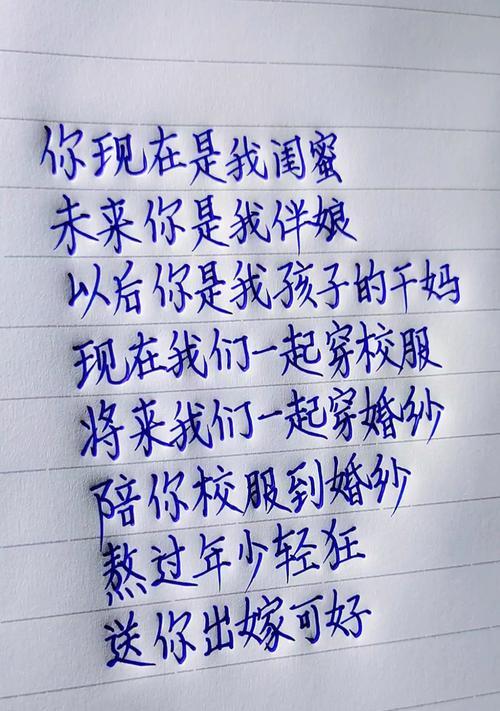 你现在是我闺蜜
未来你是我伴娘
以后你是我孩子的干妈
现在我们一起穿校服
将来我们一起穿婚纱
陪你校服到婚纱
熬过年少轻狂
送你出嫁可好